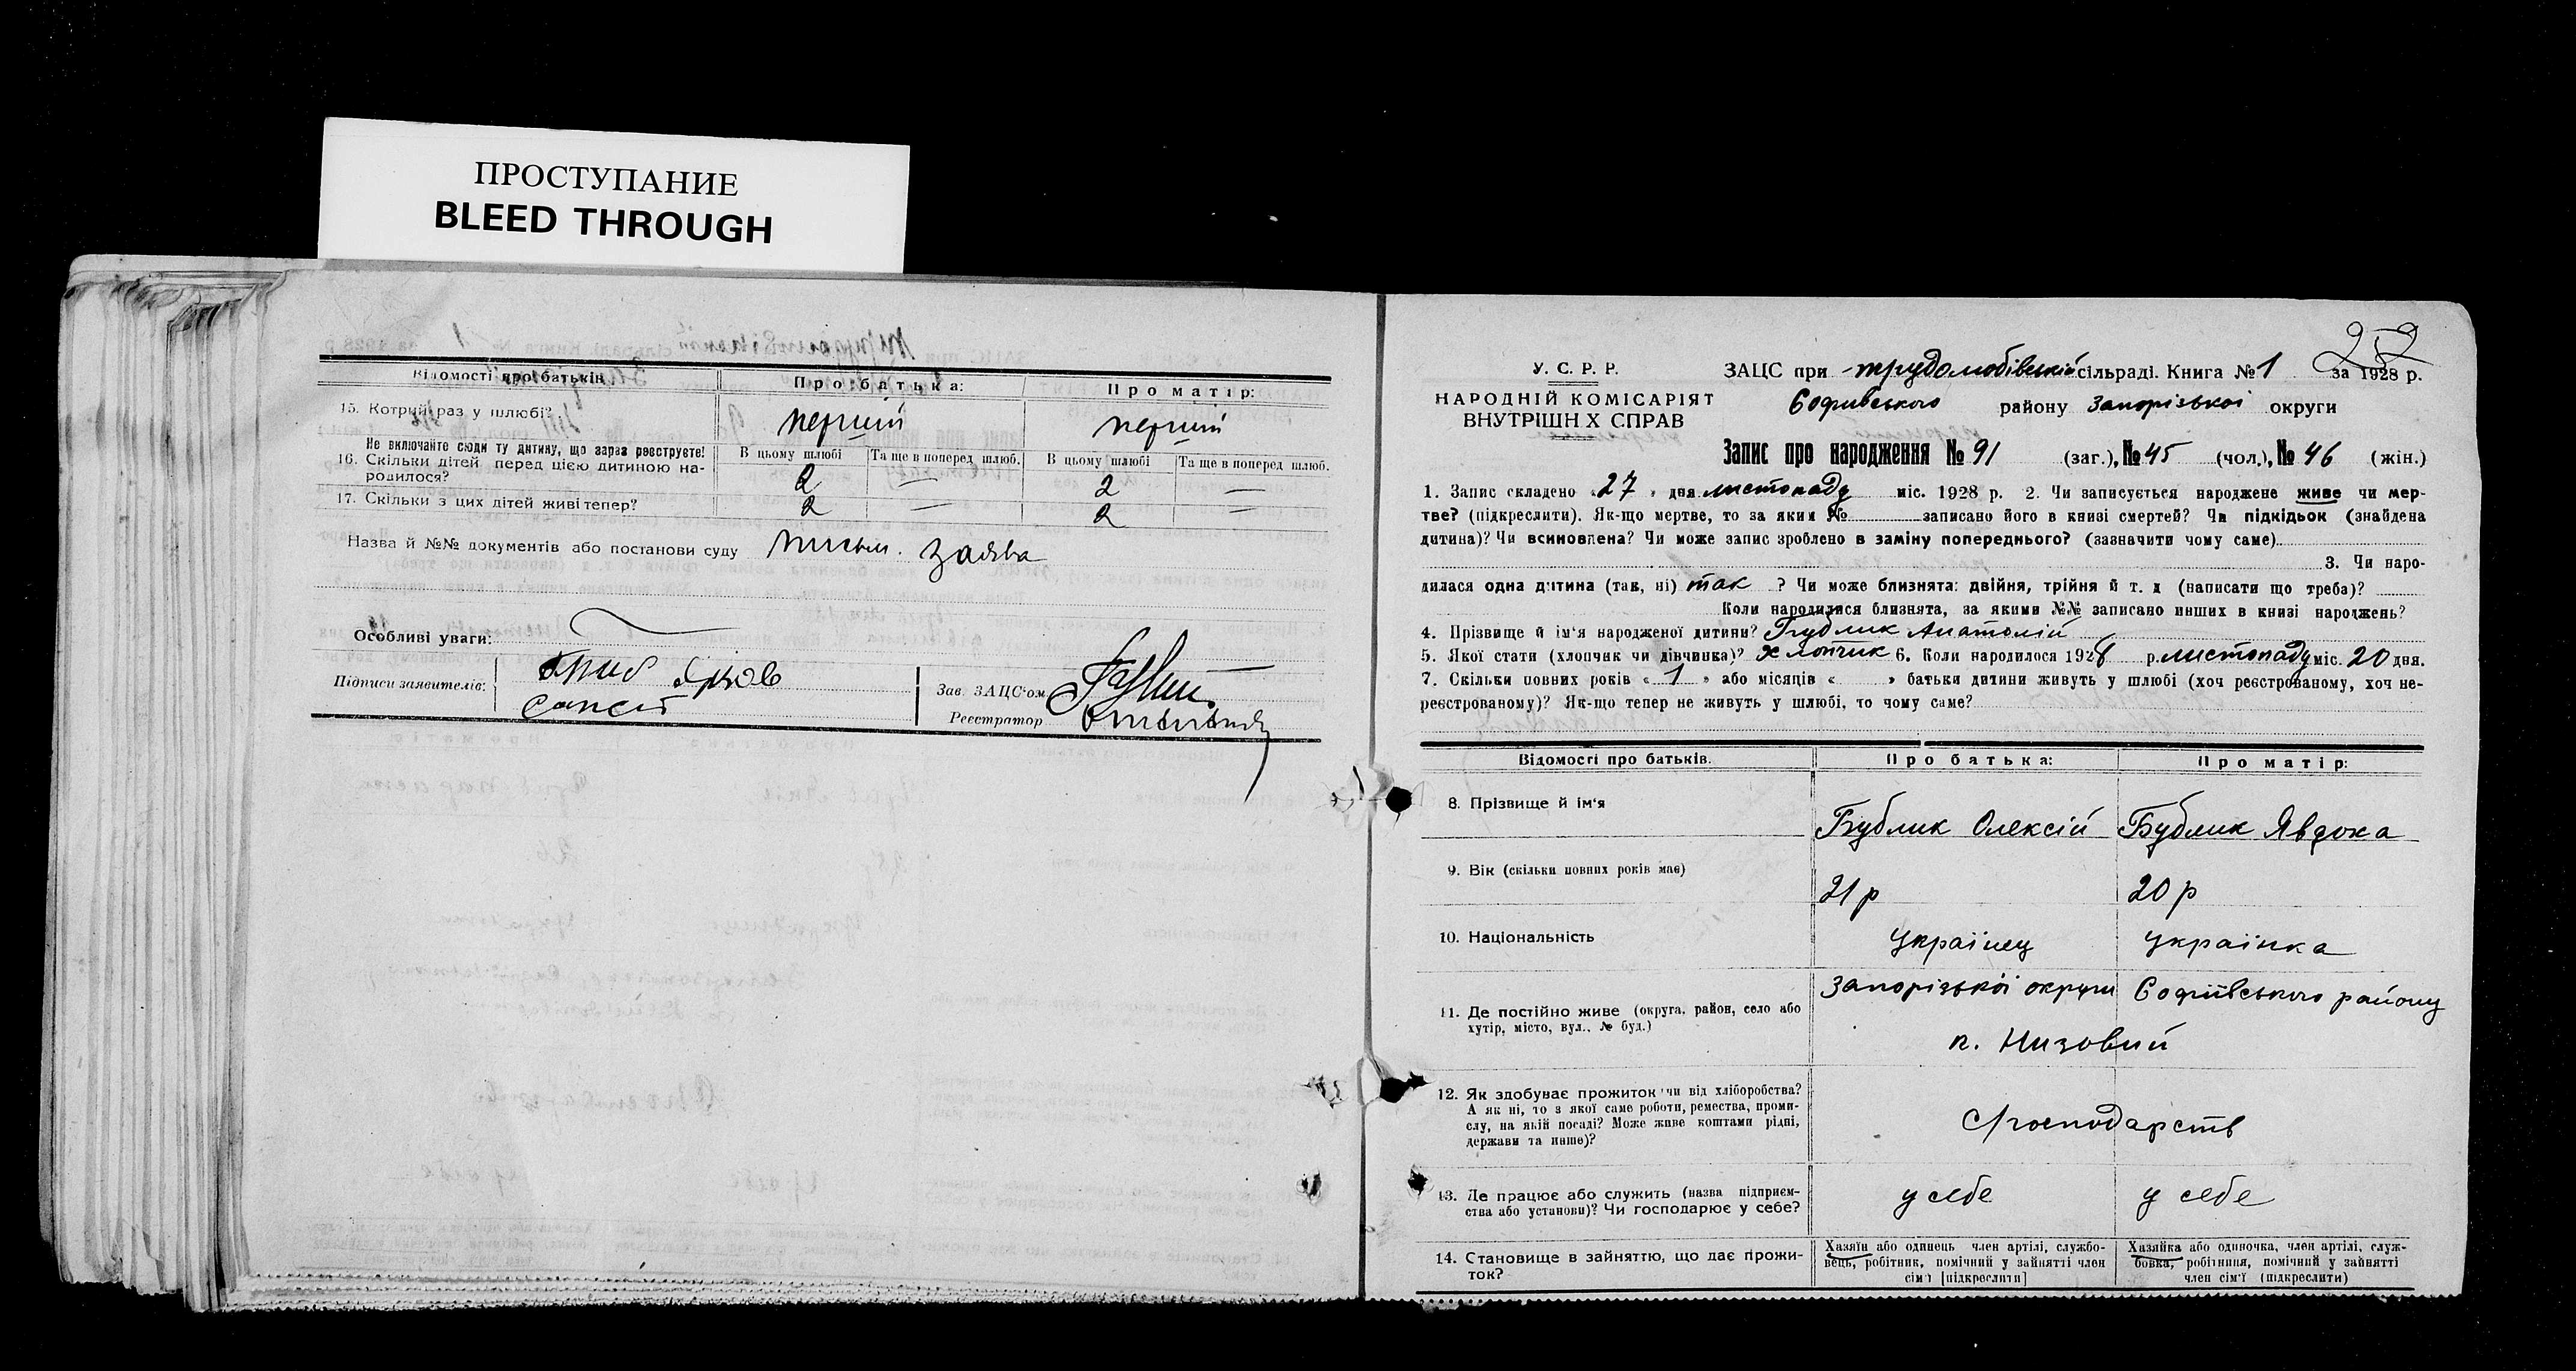 ПРОСТУПАНИЕ
BLEED THROUGH
Відомості про батьків
Про батька:
Про матір:
15. Котрий раз у шлюбі?
перший
перший
Не включайте сюди ту дитину, що зараз реєструєте!
В цьому шлюбі
Та ще в поперед. шлюб.
В цьому шлюбі
Та ще в поперед. шлюб.
16. Скільки дітей перед цією дитиною на-
родилося?
2 — 2 —
17. Скільки з цих дітей живі тепер?
2 — 2 —
Назва й №№ документів або постанови суду письм. заява
Особливі уваги:
Підписи заявителів:
Гриб Яков
Зав. ЗАЦС'ом
Реєстратор
22
У. С. Р. Р.
НАРОДНІЙ КОМІСАРІЯТ
ВНУТРІШН Х СПРАВ
ЗАЦС при трудолюбівській сільраді. Книга № 1 за 1928 р.
Софиівського району Запорізькоі округи
Запис про народження № 91 (заг.), № 45 (чол.), № 46 (жін.)
1. Запис складено «27» дня листопаду міс. 1928 р. 2. Чи записується народжене живе чи мер-
тве? (підкреслити). Як-що мертве, то за яким № записано його в книзі смертей? Чи підкідьок (знайдена
дитина)? Чи всиновлена? Чи може запис зроблено в заміну попереднього? (зазначити чому саме)
3. Чи наро-
дилася одна дитина (так, ні) так ? Чи може близнята: двійня, трійня й т. д (написати що треба)?
Коли народилися близнята, за якими №№ записано инших в книзі народжень?
4. Прізвище й ім'я народженої дитини? Бублик Анатолій
5. Якої стати (хлопчик чи дівчинка)? хлопчик 6. Коли народилося 1928 р. листопаду міс. 20 дня.
7. Скільки повних років «1» або місяців « » батьки дитини живуть у шлюбі (хоч реєстрованому, хоч не-
реєстрованому)? Як-що тепер не живуть у шлюбі, то чому саме?
Відомості про батьків.
Про батька:
Про матір:
8. Прізвище й ім'я
Бублик Олексій
Бублик Явдоха
9. Вік (скільки повних років має)
21 р
20 р
10. Національність
українец
українка
11. Де постійно живе (округа, район, село або
хутір, місто, вул., № буд.)
Запорізької округи Софиївського району
п. Низовий
12. Як здобуває прожиток чи від хліборобства?
А як ні, то з якої саме роботи, ремества, проми-
слу, на якій посаді? Може живе коштами рідні,
держави та инше)?
13. Де працює або служить (назва підприєм-
ства або установи)? Чи господарює у себе?
у себе
у себе
14. Становище в зайняттю, що дає прожи-
ток?
Хазяїн або одинець член артілі, службо-
вець, робітник, помічний у зайнятті член
сім'ї [підкреслити]
Хазяйка або одиночка, член артілі, служ-
бовка, робітниця, помічний у зайнятті
член сім'ї (підкреслити)